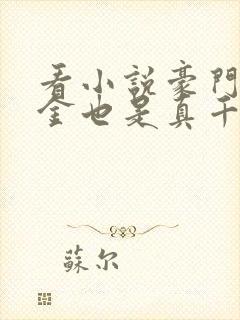 看小說豪門
金也是真千
蘇尔